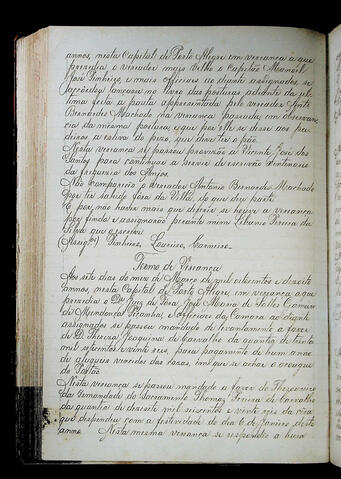 annos, nesta Capital de Porto Alegre em vereança a que
presedia o vereador mais velho o Capitão Manoel
José Pinheiro, e mais officiaes ao diante assignados se
acordou lançar no livro das posturas adiante da ul-
tima feita a pauta appresentada pelo vereador Antº
Bernardes Machado na vereança passada, em observan-
cia da mesma postura, e que por elle se desse aos pa-
deiros a estiva do pezo, que deve ter o pão.
Nesta vereança se passou provisão a Vicente José dos
Santos para continuar a servir de escrivão Vintenario
da freguesia dos Anjos.
Não compareceo o vereador Antonio Bernardes Machado
por ter sahido fora da Villa, do que deu parte.
E por não haver mais que diferir se houve a vereança
por finda e assignarão perante mim Libanio Pereira da
Silva que a escrevi
(Assigºˢ) Pinheiro, Loureiro, Carneiro.
Termo de Vereança
Aos sete dias do mez de Março de mil oitocentos e desoito
annos, nesta Capital de Porto Alegre, em vereança a que
presedio o Dʳ Juiz de Fora José Maria de Salles Gameiro
de Mendonça Peçanha, e officiaes da Camara ao diante
assignados se passou mandado de levantamento a favor
de D. Thereza Joaquina de Carvalho da quantia de trinta
mil setecentos e vinte reis, para pagamento de hum anno
de alugueis vencidos das casas, em que se achar o açougue
do Portão.
Nesta vereança se passou mandado a favor do Thezoureiro
da Irmandade do Sacramento Thomaz Pereira de Carvalho
da quantia de desesete mil seiscentos e vente reis da cêra
que despendeu com a festividade do dia 6 de Janeiro deste
anno. Nesta mesma vereança se respondeo a hum